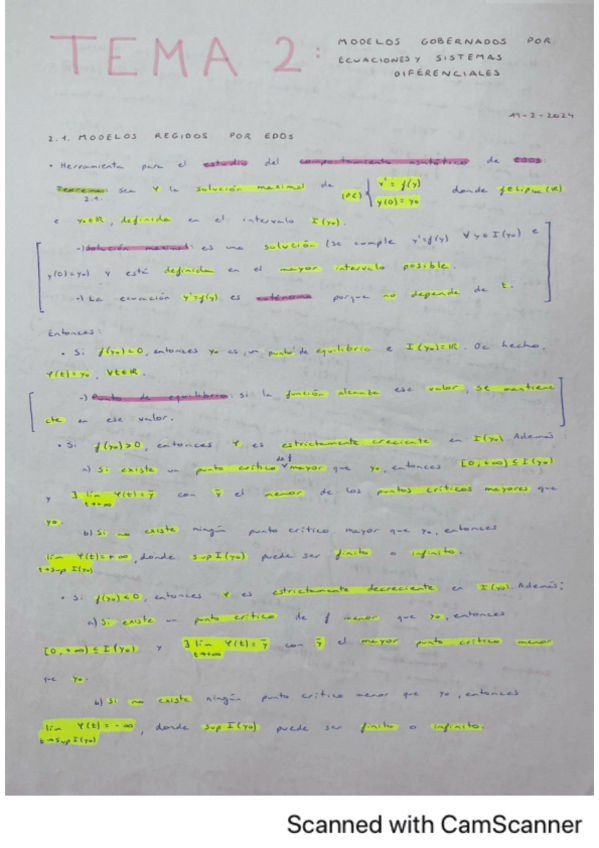 TEMA 2:
MODELOS GOBERNADOS POR
ECUACIONES Y SISTEMAS
DIFERENCIALES
19-2-2024
2.1. MODELOS REGIDOS POR EDOS
• Herramienta para el estudio del comportamiento asintótico de EDOS:
Teorema 2.1. sea Y la solución maximal de (PC) { y'=f(y) y(0)=y₀ donde f∈Liploc(ℝ)
e y₀∈ℝ, definida en el intervalo I(y₀).
-) Solución maximal: es una solución (se cumple y'=f(y) ∀y∈I(y₀) e
y(0)=y₀) y está definida en el mayor intervalo posible.
-) La ecuación y'=f(y) es autónoma porque no depende de t.
Entonces:
• Si f(y₀)=0, entonces y₀ es un punto de equilibrio e I(y₀)=ℝ. De hecho,
Y(t)=y₀, ∀t∈ℝ.
-) Punto de equilibrio: si la función alcanza ese valor, se mantiene
cte en ese valor.
• Si f(y₀)>0, entonces Y es estrictamente creciente en I(y₀). Además:
a) Si existe un punto crítico de f mayor que y₀, entonces [0,+∞)⊆I(y₀)
y ∃ lim t→+∞ Y(t)=ȳ con ȳ el menor de los puntos críticos mayores que
y₀.
b) Si no existe ningún punto crítico mayor que y₀, entonces
lim t→sup I(y₀) Y(t)=+∞, donde sup I(y₀) puede ser finito o infinito.
• Si f(y₀)<0, entonces Y es estrictamente decreciente en I(y₀). Además:
a) Si existe un punto crítico de f menor que y₀, entonces
[0,+∞)⊆I(y₀) y ∃ lim t→+∞ Y(t)=ȳ con ȳ el mayor punto crítico menor
que y₀.
b) Si no existe ningún punto crítico menor que y₀, entonces
lim t→sup I(y₀) Y(t)=-∞, donde sup I(y₀) puede ser finito o infinito.
Scanned with CamScanner